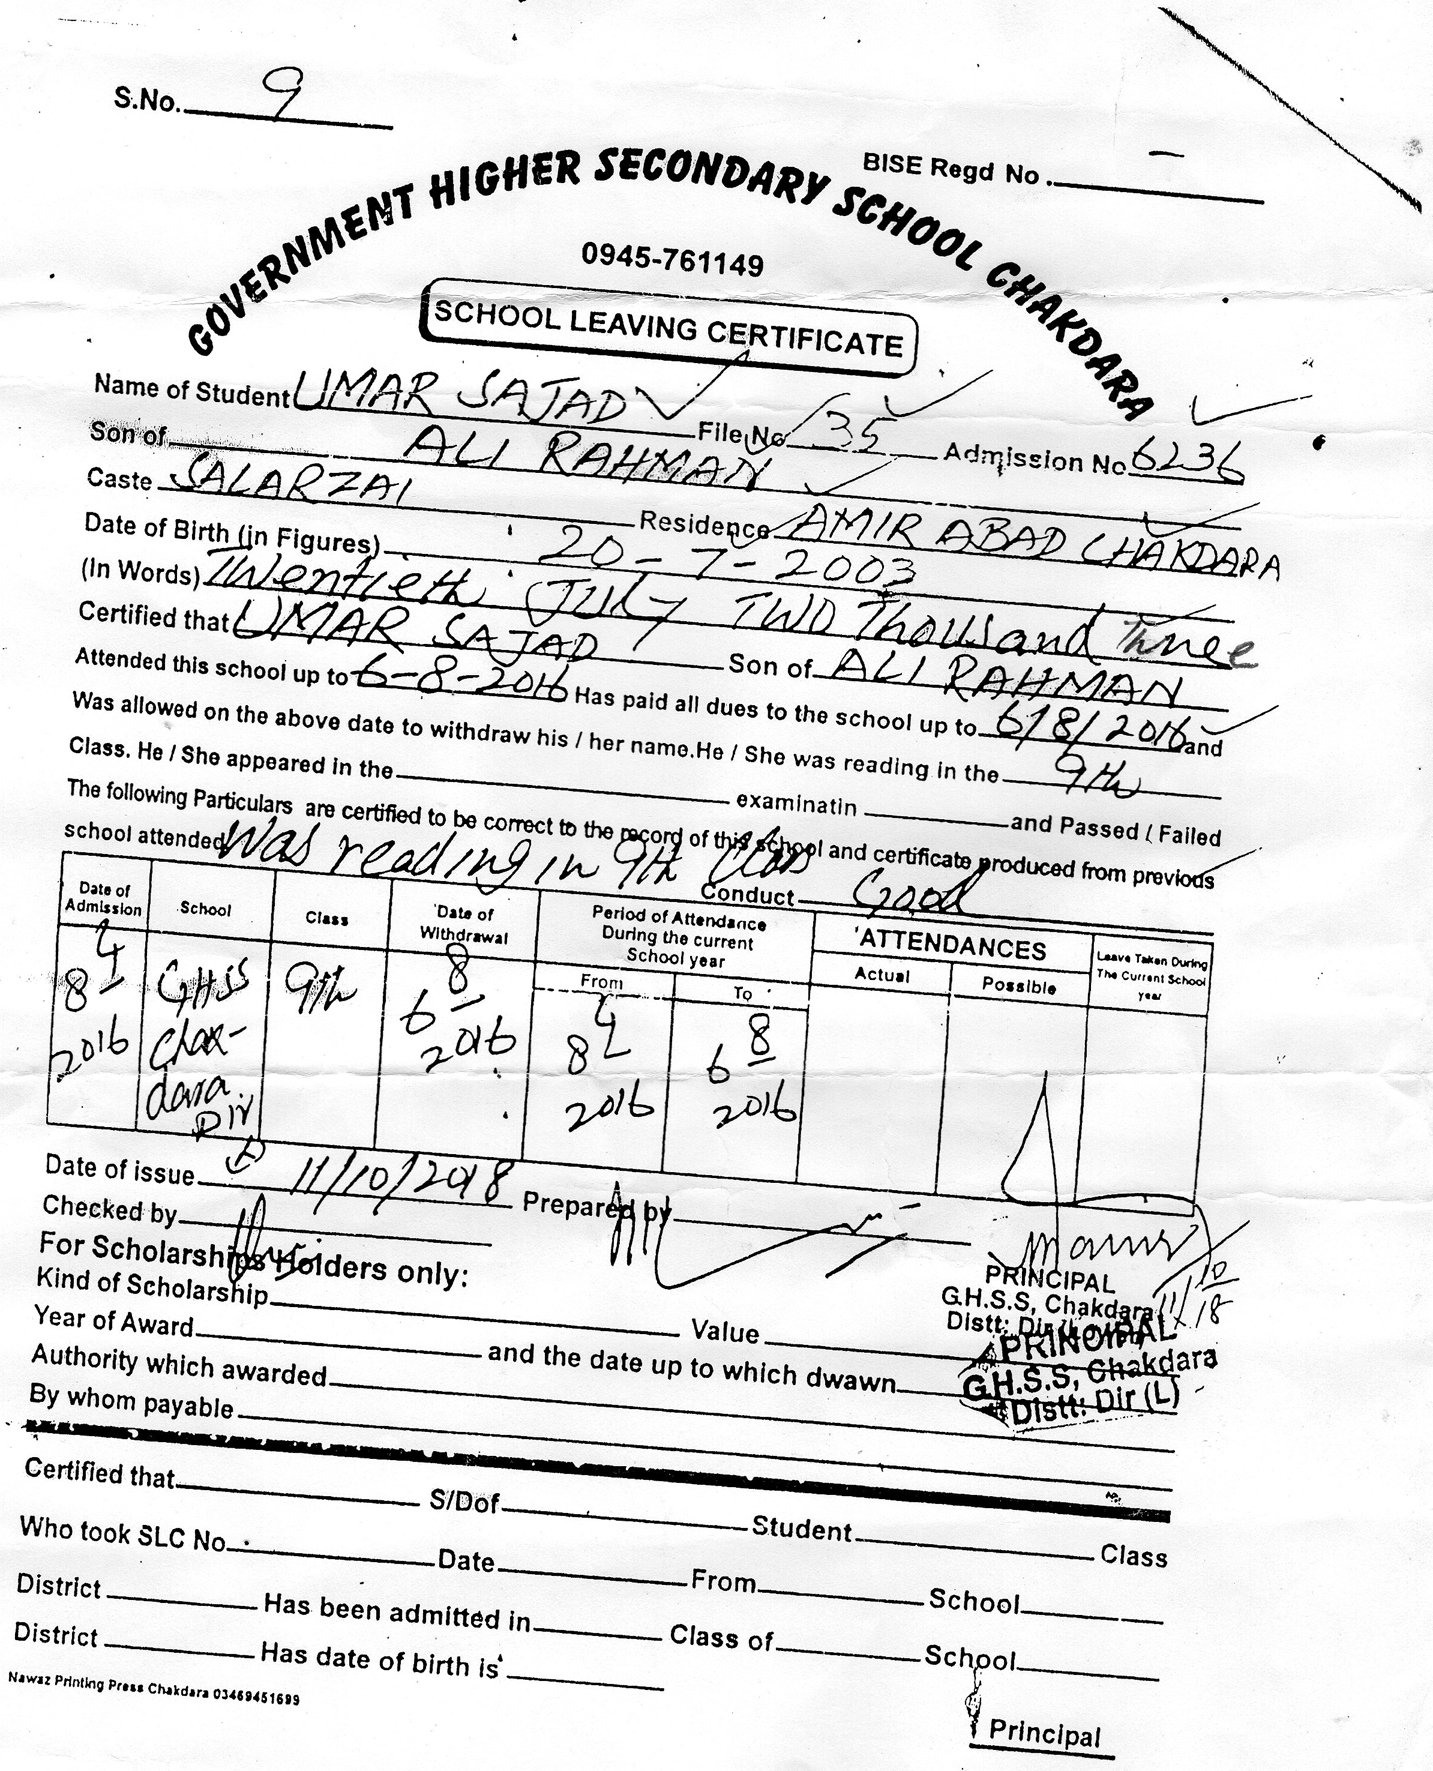 S.No. 9
BISE Regd No. –
GOVERNMENT HIGHER SECONDARY SCHOOL CHAKDARA
0945-761149
SCHOOL LEAVING CERTIFICATE
Name of Student UMAR SAJAD File No 135 Admission No 6236
Son of ALI RAHMAN
Caste SALARZAI Residence AMIR ABAD CHAKDARA
Date of Birth (in Figures) 20-7-2003
(In Words) Twentieth July TWO Thousand Three
Certified that UMAR SAJAD Son of ALI RAHMAN
Attended this school up to 6-8-2016 Has paid all dues to the school up to 6/8/2016 and
Was allowed on the above date to withdraw his / her name.He / She was reading in the 9th
Class. He / She appeared in the examinatin and Passed / Failed
The following Particulars are certified to be correct to the record of this school and certificate produced from previous
school attended Was reading in 9th Class
Conduct Good
Date of Admission School Class Date of Withdrawal Period of Attendance During the current School year ATTENDANCES Leave Taken During The Current School year
From To Actual Possible
8 4 2016 GHSS Chakdara Dir 9th 6 8 2016 8 4 2016 6 8 2016
Date of issue 11/10/2018 Prepared by
Checked by
For Scholarships Holders only:
PRINCIPAL
G.H.S.S, Chakdara
Distt: Dir
11/10/18
Kind of Scholarship Value
PRINCIPAL
G.H.S.S, Chakdara
Distt: Dir (L)
Year of Award and the date up to which dwawn
Authority which awarded
By whom payable
Certified that S/Dof Student Class
Who took SLC No. Date From School
District Has been admitted in Class of School
District Has date of birth is
Nawaz Printing Press Chakdara 03469451699
Principal